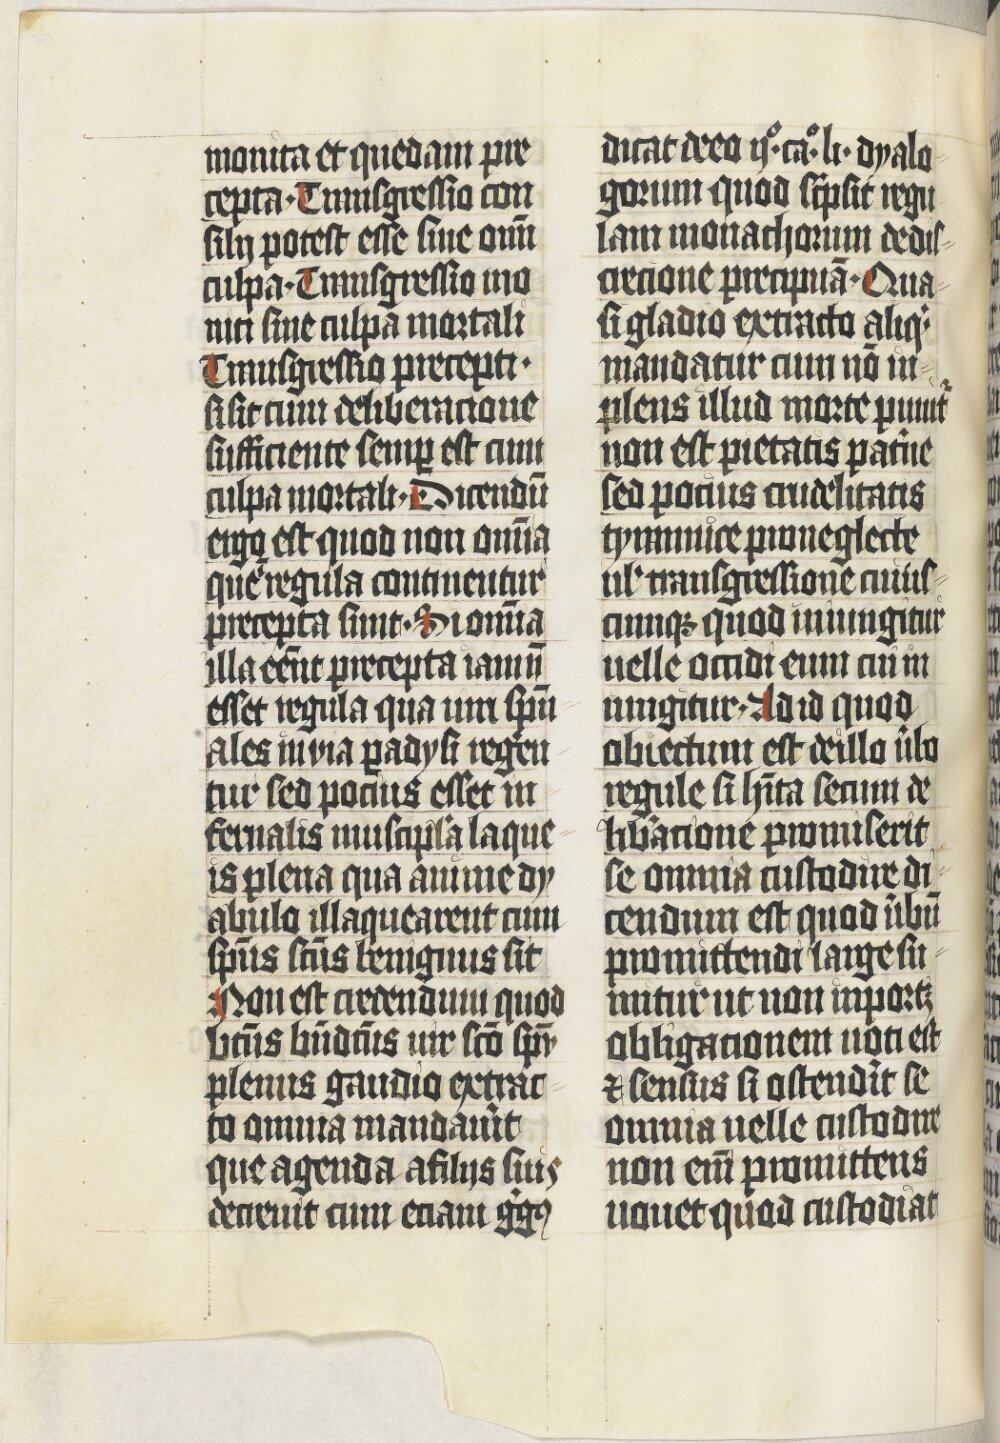 monita et quedam pre
cepta. Transgressio con
silij potest esse sine omī
culpa. Transgressio mo
niti sine culpa mortali
Transgressio precepti.
si sit cum deliberacione
sufficiente semꝑ est cum
culpa mortali. Dicendū
ergo est quod non om̄ia
que regula continentur
precepta sunt. Si om̄ia
illa eēnt precepta iam nō
esset regula qua uiri spūa
ales in via ꝑadysi regerēn
tur sed pocius esset in
fernalis muscipula laque
is plena qua anime dy
abulo illaquearent cum
spūs scūs benignus sit
Non est credendum quod
btūs bn̄dcūs uir scō spū
plenus gaudio extrac
to omnia mandauit
que agenda a filijs suis
decreuit cum eciam gͥgoꝰ
dicat de eo ijº. caº. li. dyalo
gorum quod sc̄psit regu
lam monachorum de dis
crecione precipuā. Qua
si gladio extracto aliqͥ.
mandatur cum nō im
plens illud morte punit᷑
non est pietatis pat̄ne
sed pocius crudelitatis
tyrannice pro neglecte
ul᷑ transgressione cuius
cumqꝫ quod iniungitur
uelle occidi eum cui in
iungitur. Ad id quod
obiectum est de illo ūbo
regule si hīta secum de
lib̄acione promiserit
se omnia custodire di
cendum est quod ūbū
promittendi large su
mitur ut non inportꝫ
obligacionem uoti est
⁊ sensus si ostendīt se
omnia uelle custodire
non em̄ promittens
uouet quod custodiat